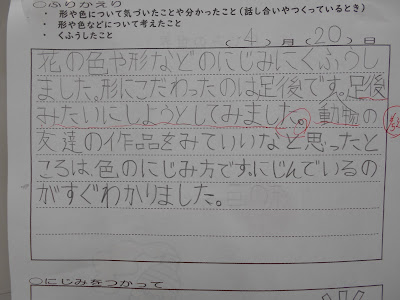 ○ふりかえり
・ 形や色について気づいたことや分かったこと(話し合いやつくっているとき)
・ 形や色などについて考えたこと
・ くふうしたこと
(4)月(20)日
花の色や形などのにじみにくふうし
ました。形にこだわったのは足後です。足後
みたいにしようとしてみました。動物の
友達の作品をみていいなと思ったと
ころは、色のにじみ方です。にじんでいるの
がすぐわかりました。
○にじみをつかって